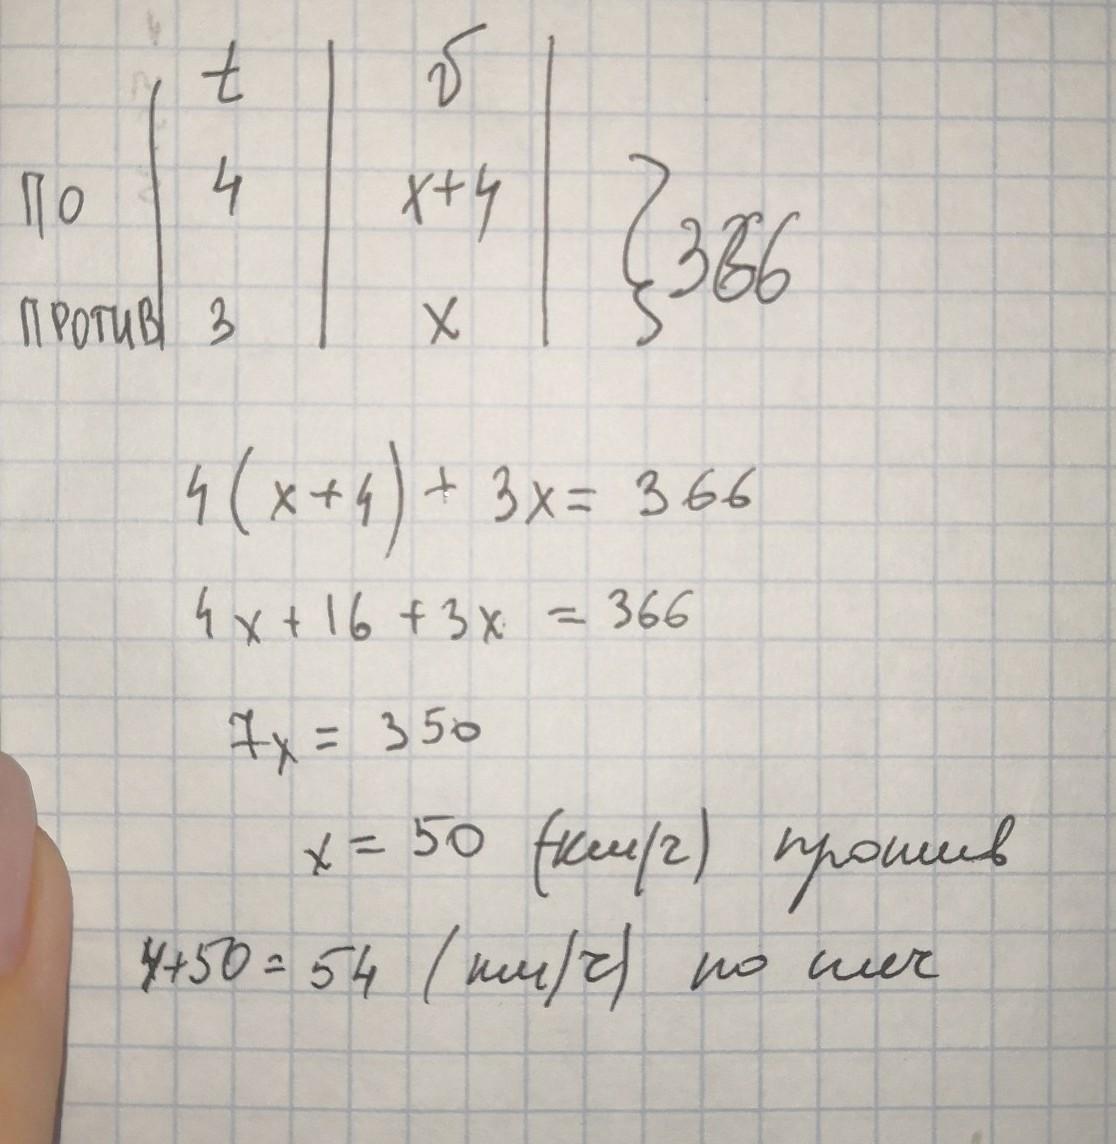 t | v
ПО | 4 | x+4 | } 366
ПРОТИВ | 3 | x
4(x+4) + 3x = 366
4x + 16 + 3x = 366
7x = 350
x = 50 (км/ч) против
4+50 = 54 (км/ч) по теч